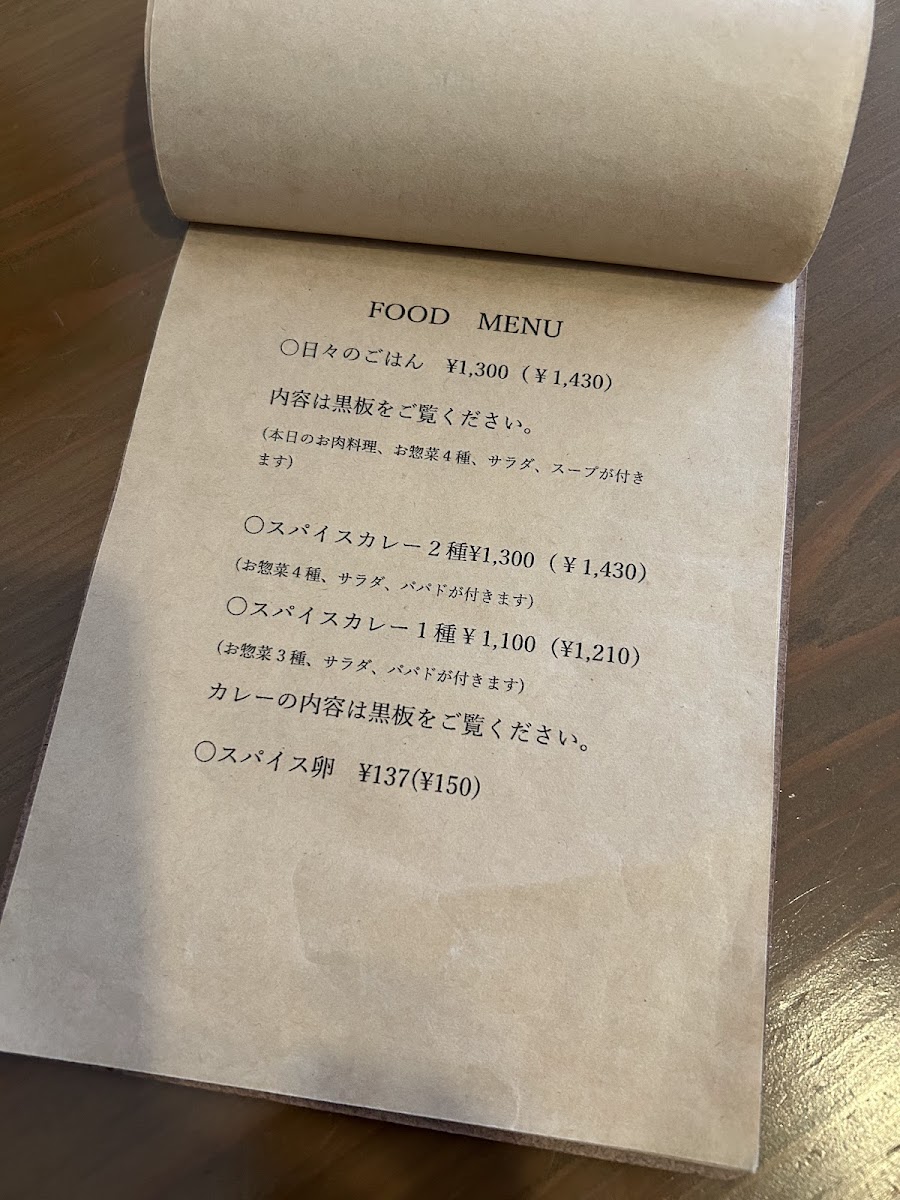 FOOD MENU
〇日々のごはん ¥1,300（¥1,430）
内容は黒板をご覧ください。
(本日のお肉料理、お惣菜４種、サラダ、スープが付き
ます)
〇スパイスカレー２種¥1,300（¥1,430）
(お惣菜４種、サラダ、パパドが付きます)
〇スパイスカレー１種¥1,100（¥1,210）
(お惣菜３種、サラダ、パパドが付きます)
カレーの内容は黒板をご覧ください。
〇スパイス卵 ¥137(¥150)